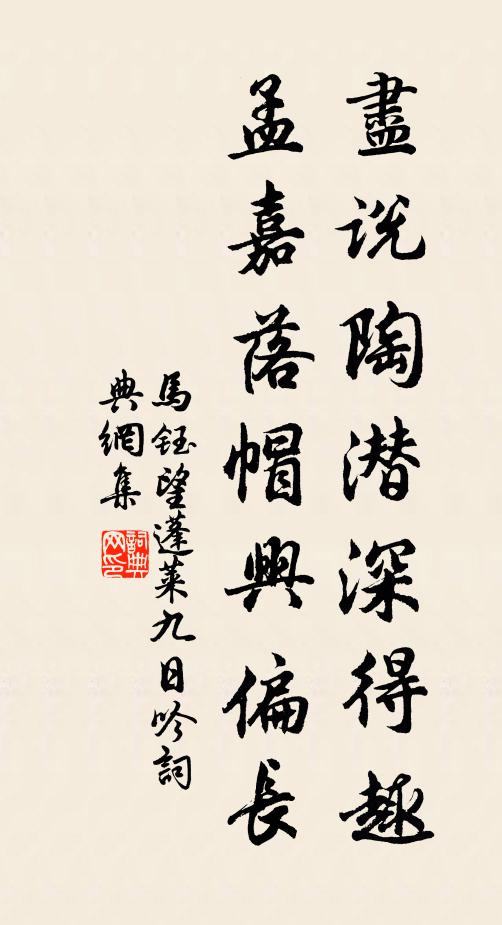 盡说陶潜深得趣
孟嘉落帽興偏長
馬鈺望蓬莱九日吟詞
典網集
詞典
网印